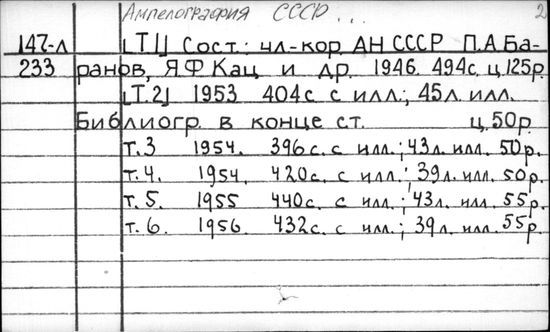 Ампелография СССР... 2
147-л [Т.1] Сост: чл-кор. АН СССР П.А.Ба-
233 ранов, Я.Ф Кац и др. 1946. 494с. ц.125р.
[Т.2] 1953 404с. с илл.; 45л. илл.
Библиогр. в конце ст. ц.50р.
т.3 1954. 396с. с илл.; 43л. илл. 50р.
т.4. 1954. 420с. с илл.; 39л. илл. 50р.
т.5. 1955 440с. с илл.; 43л. илл. 55р.
т.6. 1956. 432с. с илл.; 39л. илл. 55р.